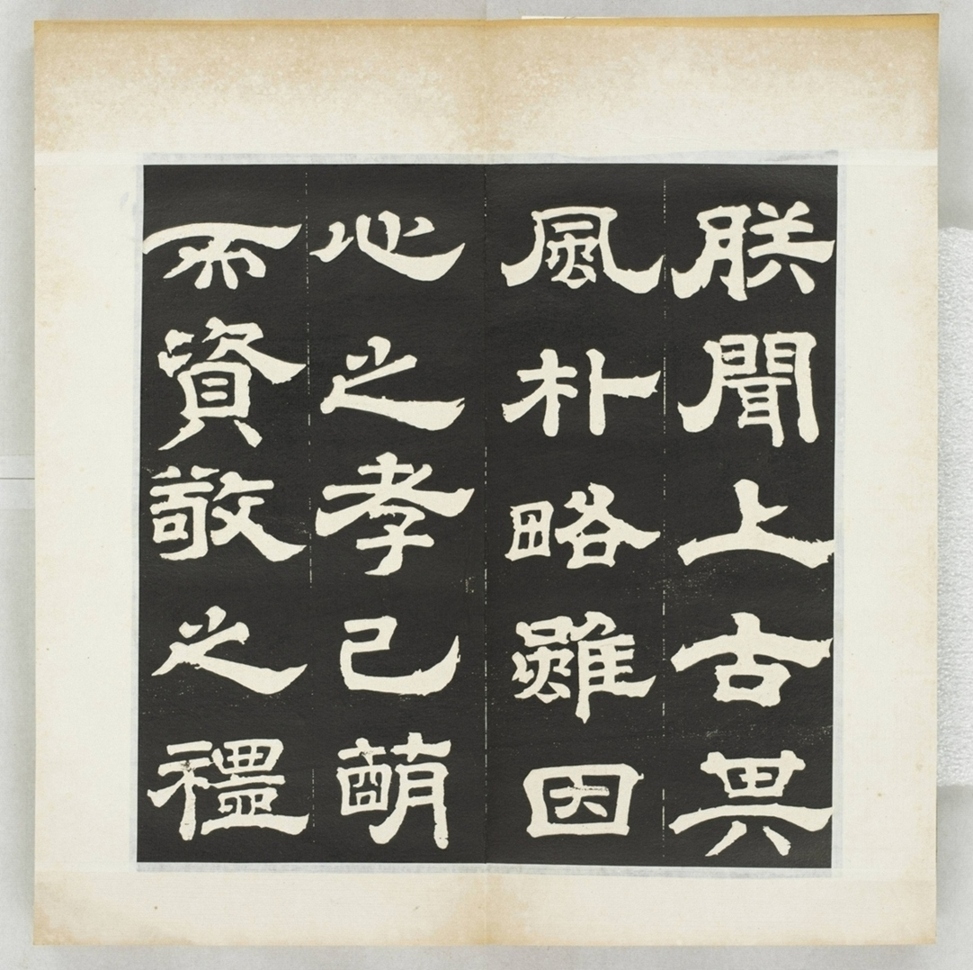 朕聞上古其
風朴略雖因
心之孝已萌
而資敬之禮